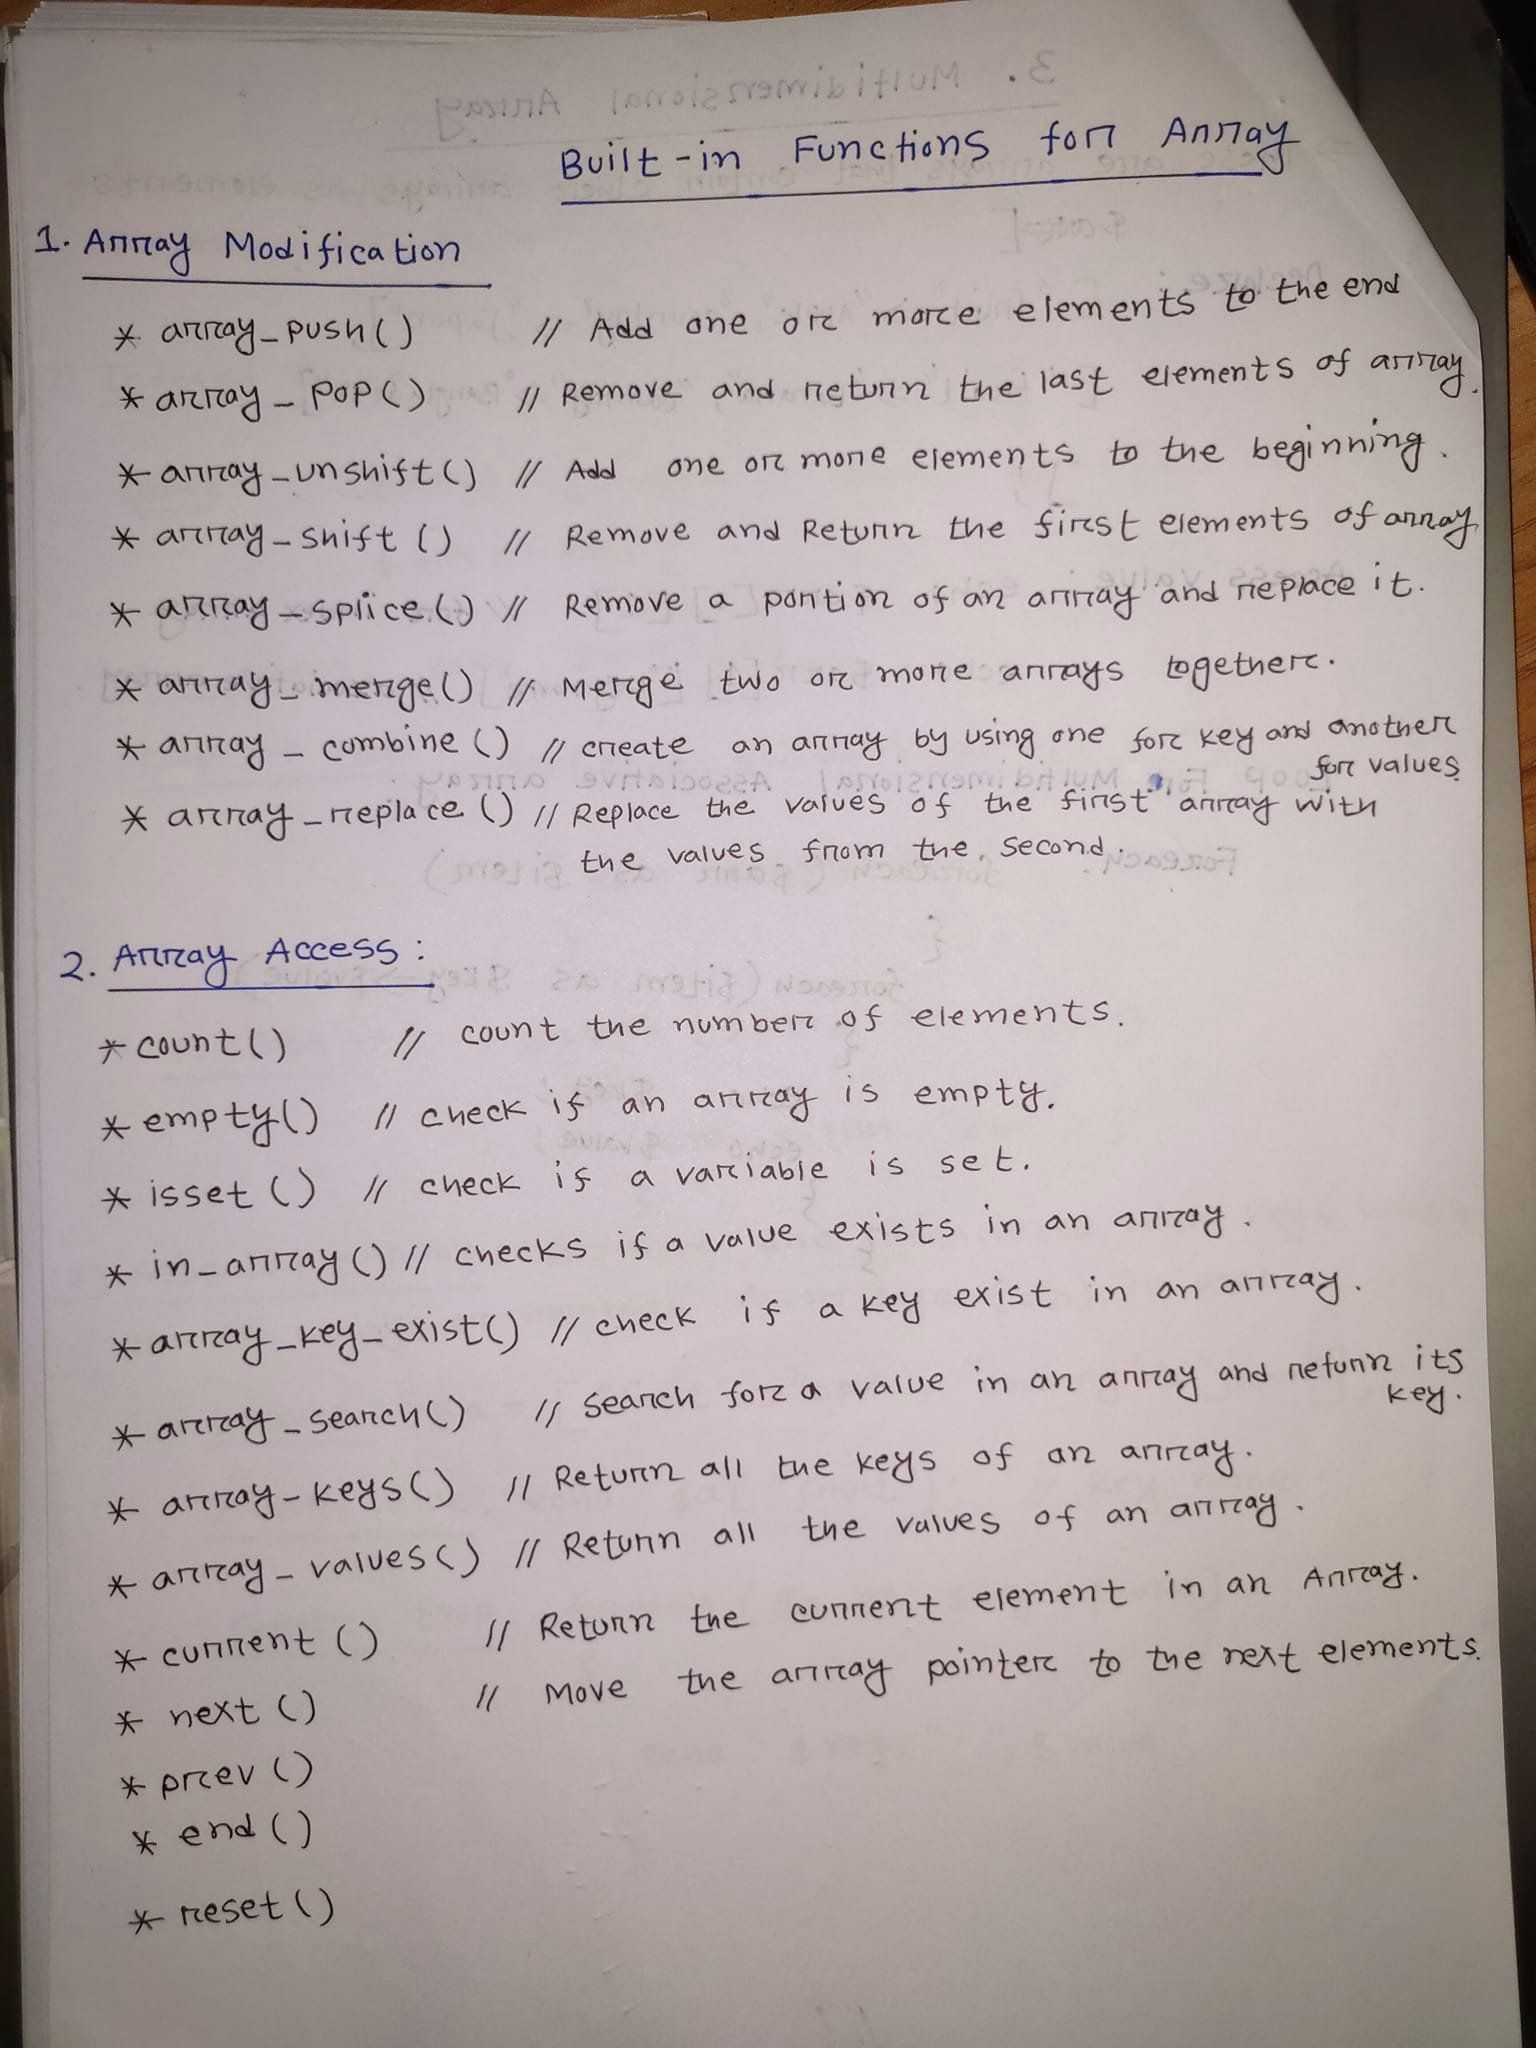 Built-in Functions for Array
1. Array Modification
* array_push() // Add one or more elements to the end
* array_pop() // Remove and return the last elements of array.
* array_unshift() // Add one or more elements to the beginning.
* array_shift() // Remove and Return the first elements of array
* array_splice() // Remove a portion of an array and replace it.
* array_merge() // Merge two or more arrays together.
* array_combine() // create an array by using one for key and another
for values
* array_replace() // Replace the values of the first array with
the values from the second.
2. Array Access:
* count() // count the number of elements.
* empty() // check if an array is empty.
* isset() // check if a variable is set.
* in_array() // checks if a value exists in an array.
* array_key_exist() // check if a key exist in an array.
* array_search() // search for a value in an array and return its
key.
* array-keys() // Return all the keys of an array.
* array_values() // Return all the values of an array.
* current() // Return the current element in an Array.
* next() // Move the array pointer to the next elements.
* prev()
* end()
* reset()